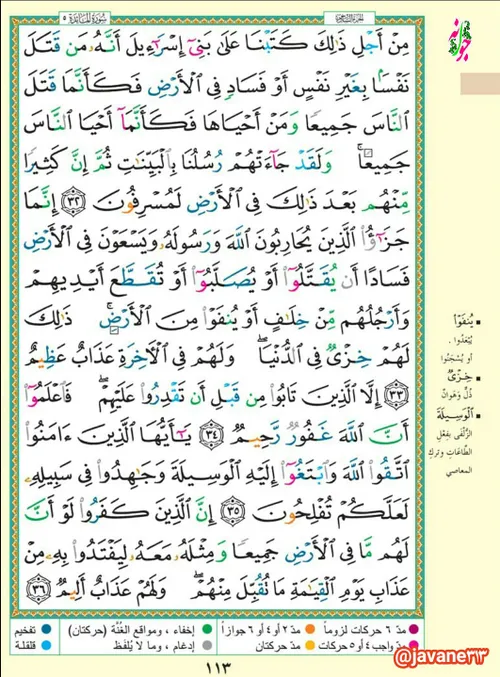 سُورَةُ المَائدَة ٥
الجزء السادس
جوانه
مِنْ أَجْلِ ذَٰلِكَ كَتَبْنَا عَلَىٰ بَنِىٓ إِسْرَٰٓءِيلَ أَنَّهُۥ مَن قَتَلَ
نَفْسًۢا بِغَيْرِ نَفْسٍ أَوْ فَسَادٍ فِى ٱلْأَرْضِ فَكَأَنَّمَا قَتَلَ
ٱلنَّاسَ جَمِيعًا وَمَنْ أَحْيَاهَا فَكَأَنَّمَآ أَحْيَا ٱلنَّاسَ
جَمِيعًۭا ۚ وَلَقَدْ جَآءَتْهُمْ رُسُلُنَا بِٱلْبَيِّنَٰتِ ثُمَّ إِنَّ كَثِيرًۭا
مِّنْهُم بَعْدَ ذَٰلِكَ فِى ٱلْأَرْضِ لَمُسْرِفُونَ ٣٢ إِنَّمَا
جَزَٰٓؤُا۟ ٱلَّذِينَ يُحَارِبُونَ ٱللَّهَ وَرَسُولَهُۥ وَيَسْعَوْنَ فِى ٱلْأَرْضِ
فَسَادًا أَن يُقَتَّلُوٓا۟ أَوْ يُصَلَّبُوٓا۟ أَوْ تُقَطَّعَ أَيْدِيهِمْ
وَأَرْجُلُهُم مِّنْ خِلَٰفٍ أَوْ يُنفَوْا۟ مِنَ ٱلْأَرْضِ ۚ ذَٰلِكَ
لَهُمْ خِزْىٌۭ فِى ٱلدُّنْيَا ۖ وَلَهُمْ فِى ٱلْءَاخِرَةِ عَذَابٌ عَظِيمٌ
٣٣ إِلَّا ٱلَّذِينَ تَابُوا۟ مِن قَبْلِ أَن تَقْدِرُوا۟ عَلَيْهِمْ ۖ فَٱعْلَمُوٓا۟
أَنَّ ٱللَّهَ غَفُورٌۭ رَّحِيمٌۭ ٣٤ يَٰٓأَيُّهَا ٱلَّذِينَ ءَامَنُوا۟
ٱتَّقُوا۟ ٱللَّهَ وَٱبْتَغُوٓا۟ إِلَيْهِ ٱلْوَسِيلَةَ وَجَٰهِدُوا۟ فِى سَبِيلِهِۦ
لَعَلَّكُمْ تُفْلِحُونَ ٣٥ إِنَّ ٱلَّذِينَ كَفَرُوا۟ لَوْ أَنَّ
لَهُم مَّا فِى ٱلْأَرْضِ جَمِيعًۭا وَمِثْلَهُۥ مَعَهُۥ لِيَفْتَدُوا۟ بِهِۦ مِنْ
عَذَابِ يَوْمِ ٱلْقِيَٰمَةِ مَا تُقُبِّلَ مِنْهُمْ ۖ وَلَهُمْ عَذَابٌ أَلِيمٌۭ ٣٦
▪ يُنفَوْا۟
يُبْعَدُوا .
أو يُسْجَنُوا
▪ خِزْىٌ
ذُلٌّ وَهَوَانٌ
▪ ٱلْوَسِيلَةَ
الزُّلْفَى بِفِعْلِ
الطَّاعَاتِ وتركِ
المعاصي
مدّ ٦ حركات لزوماً مدّ ٢ أو ٤ أو ٦ جوازاً إخفاء، ومواقع الغُنَّة (حركتان) تفخيم
مدّ واجب ٤ أو ٥ حركات مدّ حركتان إدغام، وما لا يُلفَظ قلقلة
١١٣
@javane33